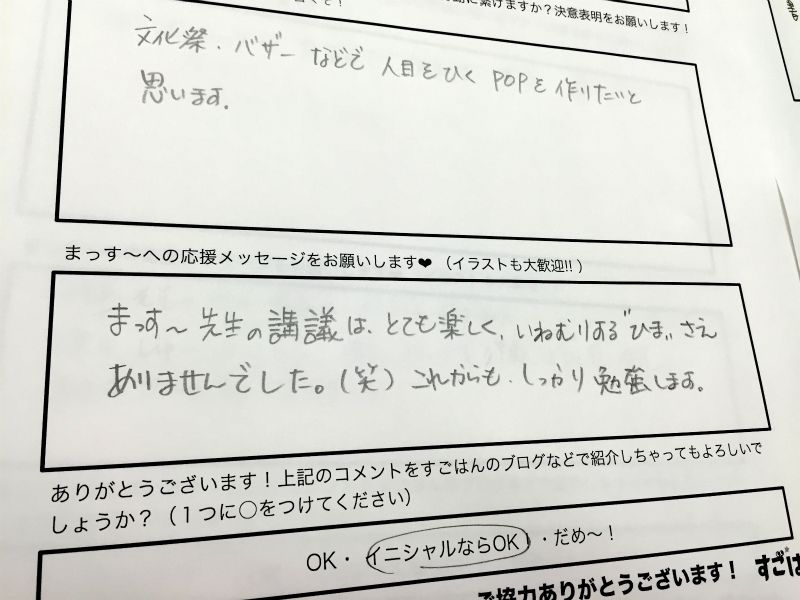 に繋げますか？決意表明をお願いします！
文化祭．バザー などで 人目をひく POPを 作りたいと
思います。
まっす〜への応援メッセージをお願いします❤（イラストも大歓迎!!）
まっす〜 先生の講議は、とても楽しく、いねむりする〝ひま〟さえ
ありませんでした。（笑）これからも、しっかり 勉強します。
ありがとうございます！上記のコメントをすごはんのブログなどで紹介しちゃってもよろしいで
しょうか？（１つに○をつけてください）
OK・イニシャルならOK・だめ〜！
ご協力ありがとうございます！ すごは